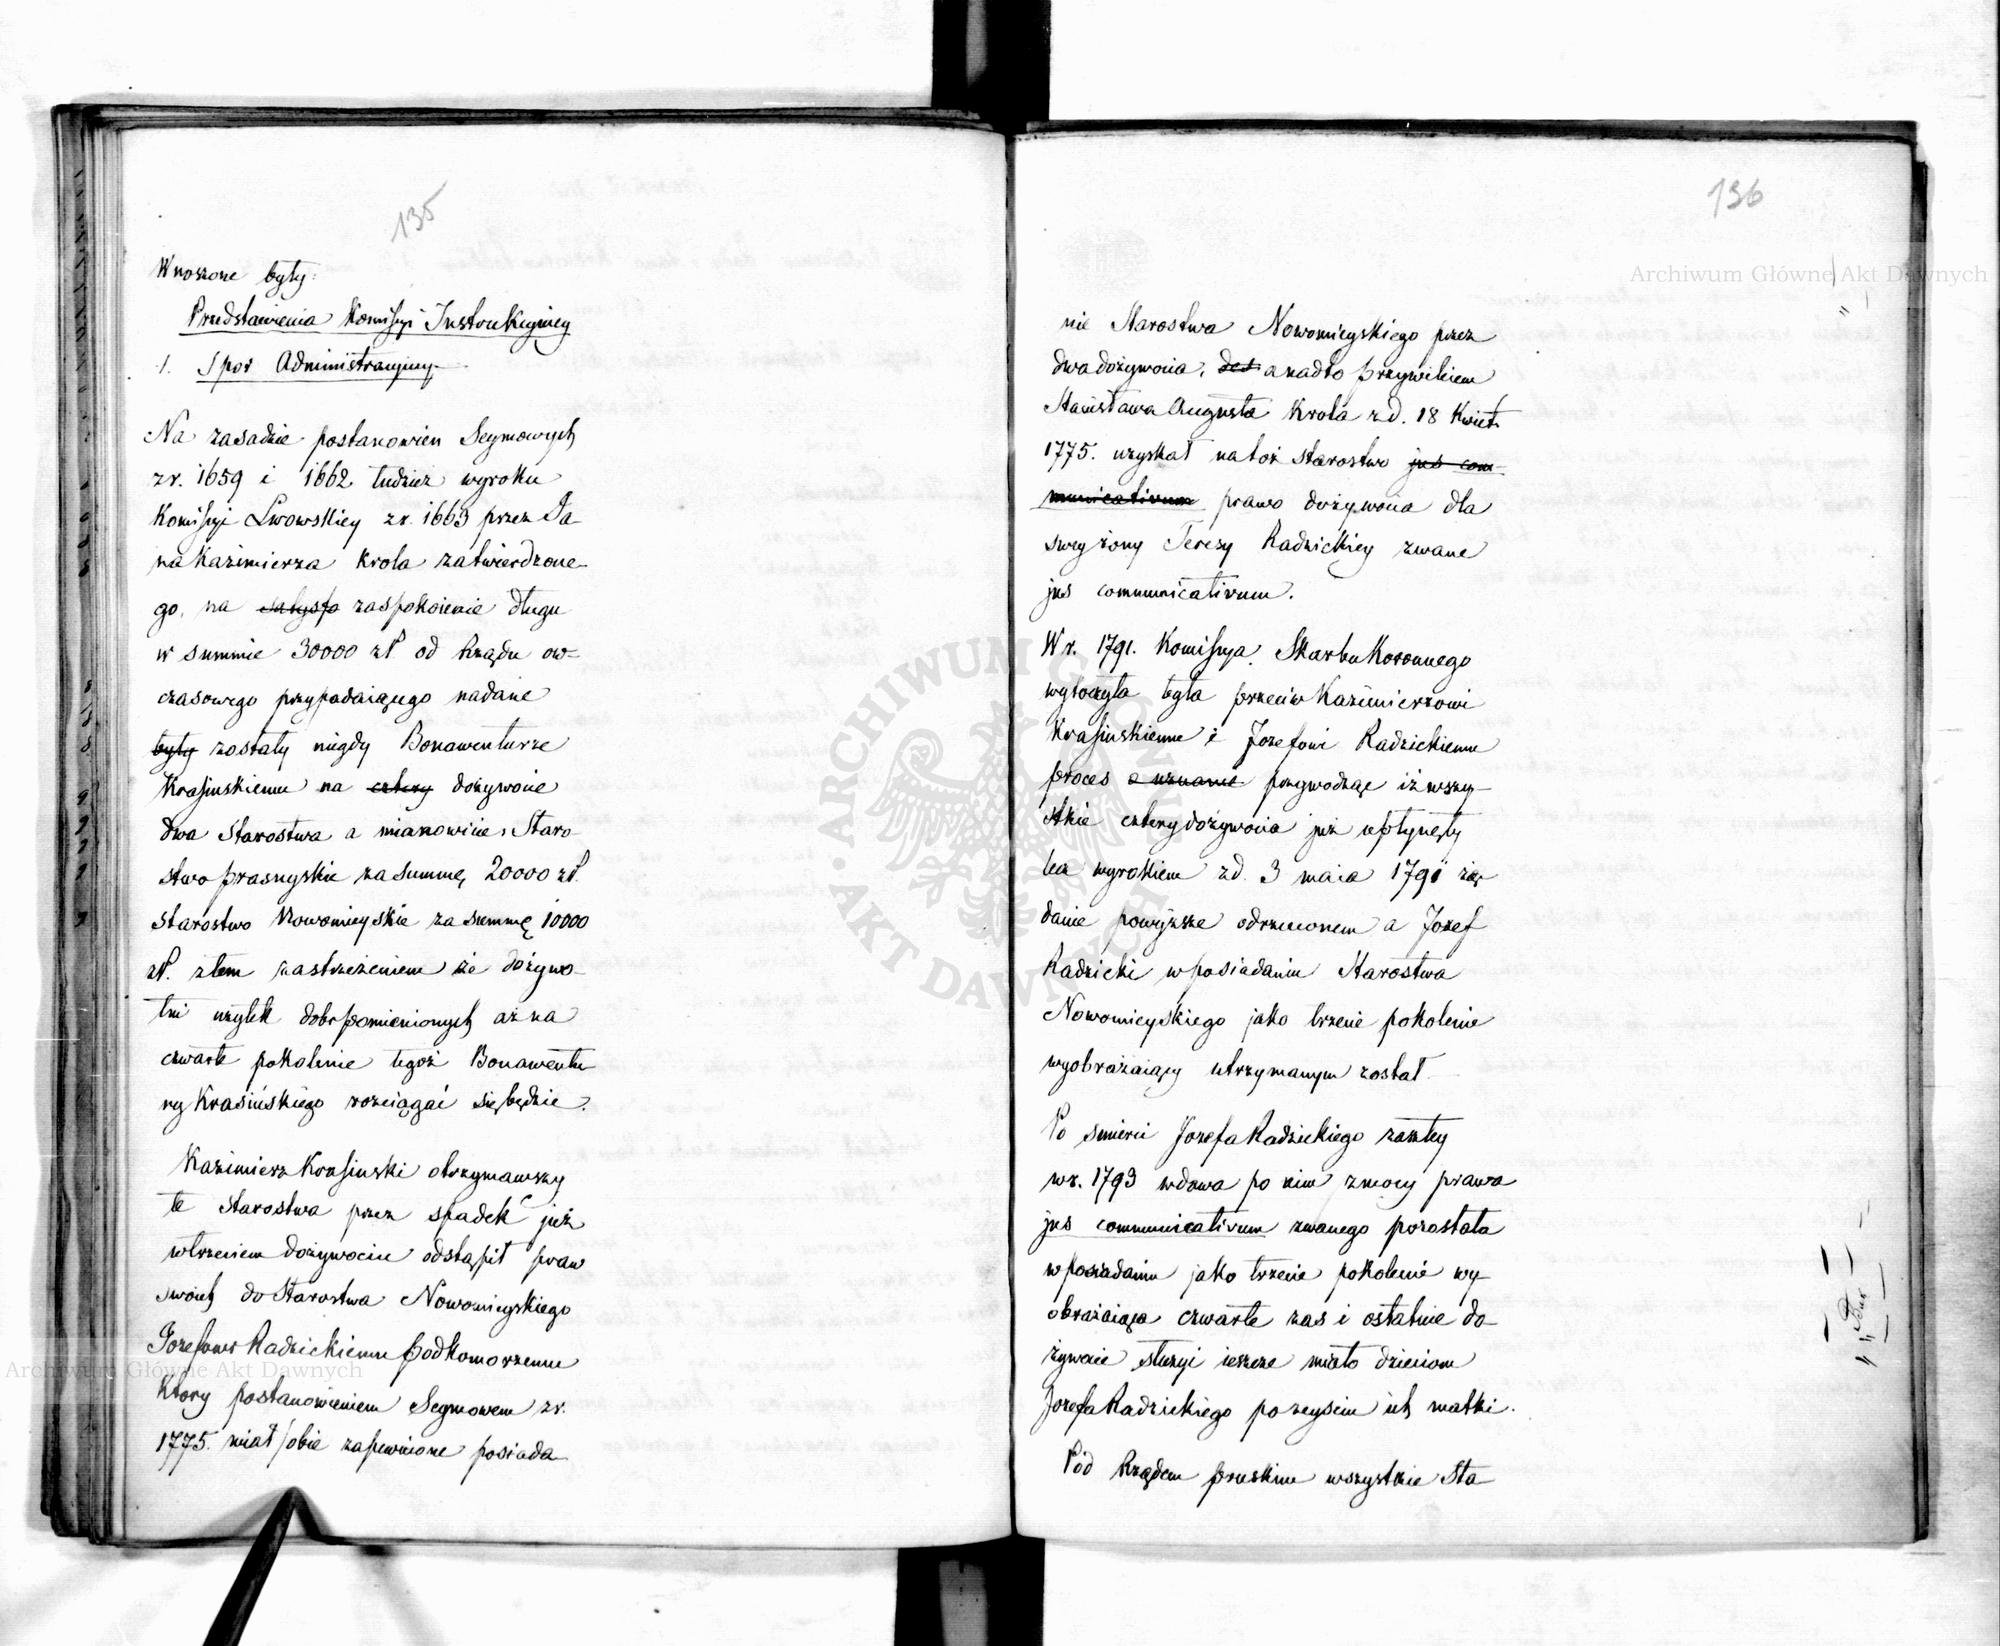 135
Wnoszone były:
Przedstawienia Komissyi Instrukcyiney
1. Spor Administracyiny
Na zasadzie postanowien Seymowych
z r. 1659 i 1662 tudzież wyroku
Komissyi Lwowskiey z r. 1663 przez Ja-
na Kazimierza Krola zatwierdzone-
go, na satysfa zaspokoienie długu
w summie 30000 zł. od Rządu ow-
czasowego przypadaiącego nadane
były zostały niegdy Bonawenturze
Krasinskiemu na cztery dożywocie
dwa Starostwa a mianowicie, Staro
stwo prasnyskie za summę, 20000 zł.
Starostwo Nowomieyskie za summę 10000
zł. z tem zastrzeżeniem że dożywo-
tni użytek dobr pomienionych aż na
czwarte pokolenie tegoż Bonawentu
ry Krasińskiego rozciągać się będzie.
Kazimierz Krasinski otrzymawszy
te Starostwa przez spadek już
w trzeciem dożywociu odstąpił praw
swoich do Starostwa Nowomieyskiego
Jozefowi Radzickiemu podkomorzemu
Ktory postanowieniem Seymowem z r.
1775. miał sobie zapewnione posiada-
136
nie Starostwa Nowomieyskiego przez
dwa dożywocia, a nadto przywileiem
Stanisława Augusta Krola z d. 18 Kwiet.
1775. uzyskał na toż starostwo jus com-
municativum prawo dożywocia dla
swey żony Teresy Radzickiey zwane
jus communicativum.
W r. 1791. Komissya Skarbu Koronnego
wytoczyła była przeciw Kazimierzowi
Krasinskiemu i Jozefowi Radzickiemu
proces o uznanie przywodząc iż wszy-
stkie cztery dożywocia już upłynęły
lecz wyrokiem z d. 3 maia 1791 żą
danie powyższe odrzuconem a Jozef
Radzicki w posiadaniu Starostwa
Nowomieyskiego jako trzecie pokolenie
wyobrażaiący utrzymanym został
Po smierci Jozefa Radzickiego zaszłey
w r. 1793 wdowa po nim z mocy prawa
jus communicativum zwanego pozostała
w posiadaniu jako trzecie pokolenie wy-
obrażaiąca czwarte zas i ostatnie do-
żywocie służyć ieszcze miało dzieciom
Jozefa Radzickiego po zeysciu ich matki.
Pod Rządem pruskim wszystkie Sta-
Archiwum Główne Akt Dawnych
Archiwum Główne Akt Dawnych
ARCHIWUM GŁÓWNE AKT DAWNYCH